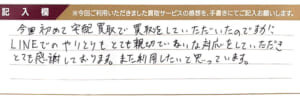 記入欄
※今回ご利用いただきました買取サービスの感想を、手書きにてご記入お願いします。
今回初めて宅配買取で買取をしていただいたのですが、
LINEでのやりとりもとても親切ていねいな対応をしていただき
とても感謝しております。また利用したいと思っています。